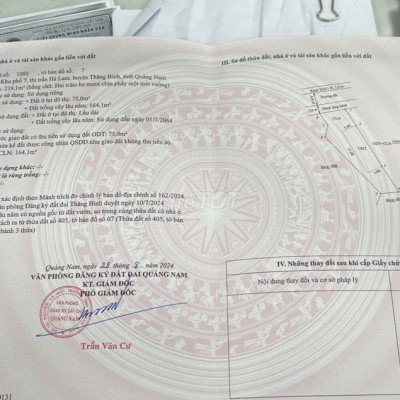 nhà ở và tài sản khác gắn liền với đất
số: 1088, tờ bản đồ số: 7
Khu phố 7, thị trấn Hà Lam, huyện Thăng Bình, tỉnh Quảng Nam
: 239,1m² (bằng chữ: Hai trăm ba mươi chín phẩy một mét vuông)
sử dụng: Sử dụng riêng
+ Đất ở tại đô thị: 75,0m²
+ Đất trồng cây lâu năm: 164,1m²
sử dụng đất: + Đất ở tại đô thị: Lâu dài
+ Đất trồng cây lâu năm: Sử dụng đến ngày 01/7/2064
sử dụng:
ước giao đất có thu tiền sử dụng đất ODT: 75,0m²
a kế đất được công nhận QSDĐ như giao đất không thu tiền sử
CLN: 164,1m²
xây dựng khác: -/-
rừng trồng: -/-
xác định theo Mảnh trích đo chỉnh lý bản đồ địa chính số 162-2024
ăn phòng Đăng ký đất đai Thăng Bình duyệt ngày 10/7/2024
lâu năm có nguồn gốc từ đất vườn, ao trong cùng thửa đất có nhà ở.
ách ra từ thửa đất số 405, tờ bản đồ số 07 (Thửa đất số 405, tờ bản
thành 3 thửa)
Quảng Nam, ngày 28 tháng 8 năm 2024
VĂN PHÒNG ĐĂNG KÝ ĐẤT ĐAI QUẢNG NAM
KT. GIÁM ĐỐC
PHÓ GIÁM ĐỐC
VĂN PHÒNG
ĐĂNG KÝ ĐẤT ĐAI
QUẢNG NAM
Trần Văn Cư
0131
III. Sơ đồ thửa đất, nhà ở và tài sản khác gắn liền với đất
IV. Những thay đổi sau khi cấp Giấy chứ
Nội dung thay đổi và cơ sở pháp lý